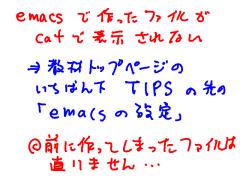 emacs で作ったファイルが
catで表示されない
⇒ 教材トップページの
いちばん下 TIPS の先の
「emacsの設定」
@前に作ってしまったファイルは
直りません…